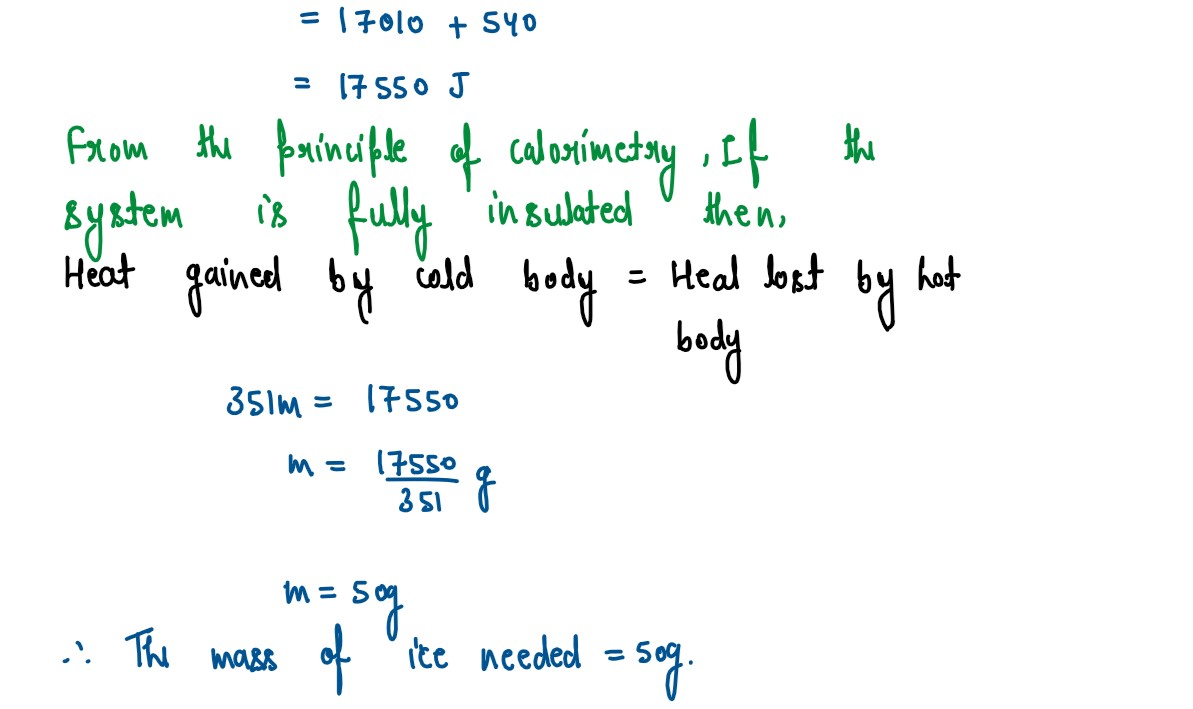 = 17010 + 540
= 17550 J
From the principle of calorimetry, If the
system is fully insulated then,
Heat gained by cold body = Heal lost by hot
body
351m = 17550
m = 17550/351 g
m = 50g
∴ The mass of ice needed = 50g.